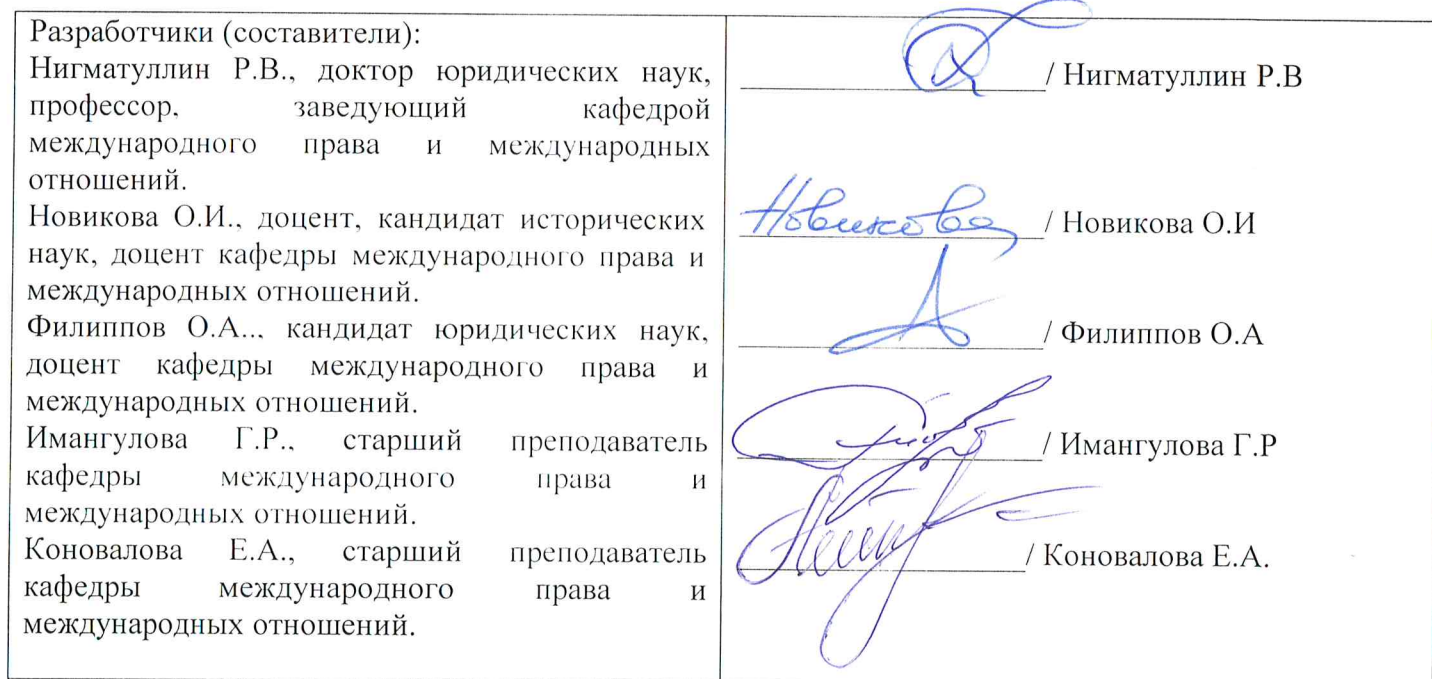 Разработчики (составители):
Нигматуллин Р.В., доктор юридических наук,
профессор, заведующий кафедрой
международного права и международных
отношений.
Новикова О.И., доцент, кандидат исторических
наук, доцент кафедры международного права и
международных отношений.
Филиппов О.А.., кандидат юридических наук,
доцент кафедры международного права и
международных отношений.
Имангулова Г.Р., старший преподаватель
кафедры международного права и
международных отношений.
Коновалова Е.А., старший преподаватель
кафедры международного права и
международных отношений.
/ Нигматуллин Р.В
Новикова / Новикова О.И
/ Филиппов О.А
/ Имангулова Г.Р
/ Коновалова Е.А.